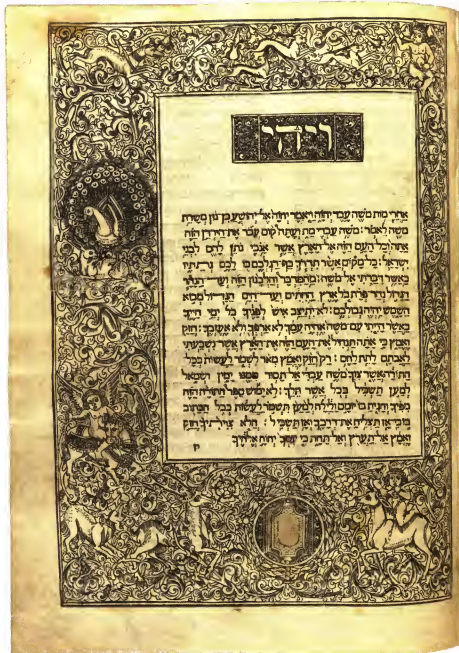 ויהי
אחרי מות משה עבד יהוה ויאמר יהוה אל יהושע בן נון משרת
משה לאמר: משה עבדי מת ועתה קום עבר את הירדן הזה
אתה וכל העם הזה אל הארץ אשר אנכי נתן להם לבני
ישראל: כל מקום אשר תדרך כף רגלכם בו לכם נתתיו
כאשר דברתי אל משה: מהמדבר והלבנון הזה ועד הנהר
הגדול נהר פרת כל ארץ החתים ועד הים הגדול מבוא
השמש יהיה גבולכם: לא יתיצב איש לפניך כל ימי חייך
כאשר הייתי עם משה אהיה עמך לא ארפך ולא אעזבך: חזק
ואמץ כי אתה תנחיל את העם הזה את הארץ אשר נשבעתי
לאבתם לתת להם: רק חזק ואמץ מאד לשמר לעשות ככל
התורה אשר צוך משה עבדי אל תסור ממנו ימין ושמאל
למען תשכיל בכל אשר תלך: לא ימוש ספר התורה הזה
מפיך והגית בו יומם ולילה למען תשמר לעשות ככל הכתוב
בו כי אז תצליח את דרכך ואז תשכיל: הלא צויתיך חזק
ואמץ אל תערץ ואל תחת כי עמך יהוה אלהיך